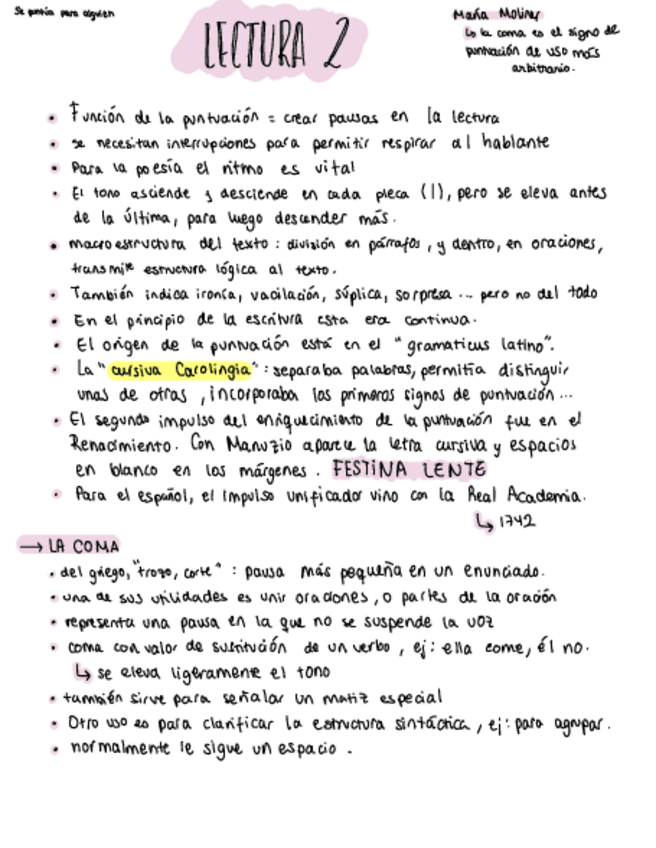 Se puntúa para alguien
LECTURA 2
María Moliner
↳ la coma es el signo de
puntuación de uso más
arbitrario.
• Función de la puntuación = crear pausas en la lectura
• se necesitan interrupciones para permitir respirar al hablante
• Para la poesía el ritmo es vital
• El tono asciende y desciende en cada pleca (|), pero se eleva antes
de la última, para luego descender más.
• macroestructura del texto: división en párrafos, y dentro, en oraciones,
transmite estructura lógica al texto.
• También indica ironía, vacilación, súplica, sorpresa ... pero no del todo
• En el principio de la escritura esta era continua.
• El origen de la puntuación está en el "gramaticus latino".
• La "cursiva Carolingia": separaba palabras, permitía distinguir
unas de otras, incorporaba los primeros signos de puntuación ...
• El segundo impulso del enriquecimiento de la puntuación fue en el
Renacimiento. Con Manuzio aparece la letra cursiva y espacios
en blanco en los márgenes. FESTINA LENTE
• Para el español, el impulso unificador vino con la Real Academia.
↳ 1742
→ LA COMA
• del griego, "trozo, corte": pausa más pequeña en un enunciado.
• una de sus utilidades es unir oraciones, o partes de la oración
• representa una pausa en la que no se suspende la voz
• coma con valor de sustitución de un verbo, ej: ella come, él no.
↳ se eleva ligeramente el tono
• también sirve para señalar un matiz especial
• Otro uso es para clarificar la estructura sintáctica, ej: para agrupar.
• normalmente le sigue un espacio.